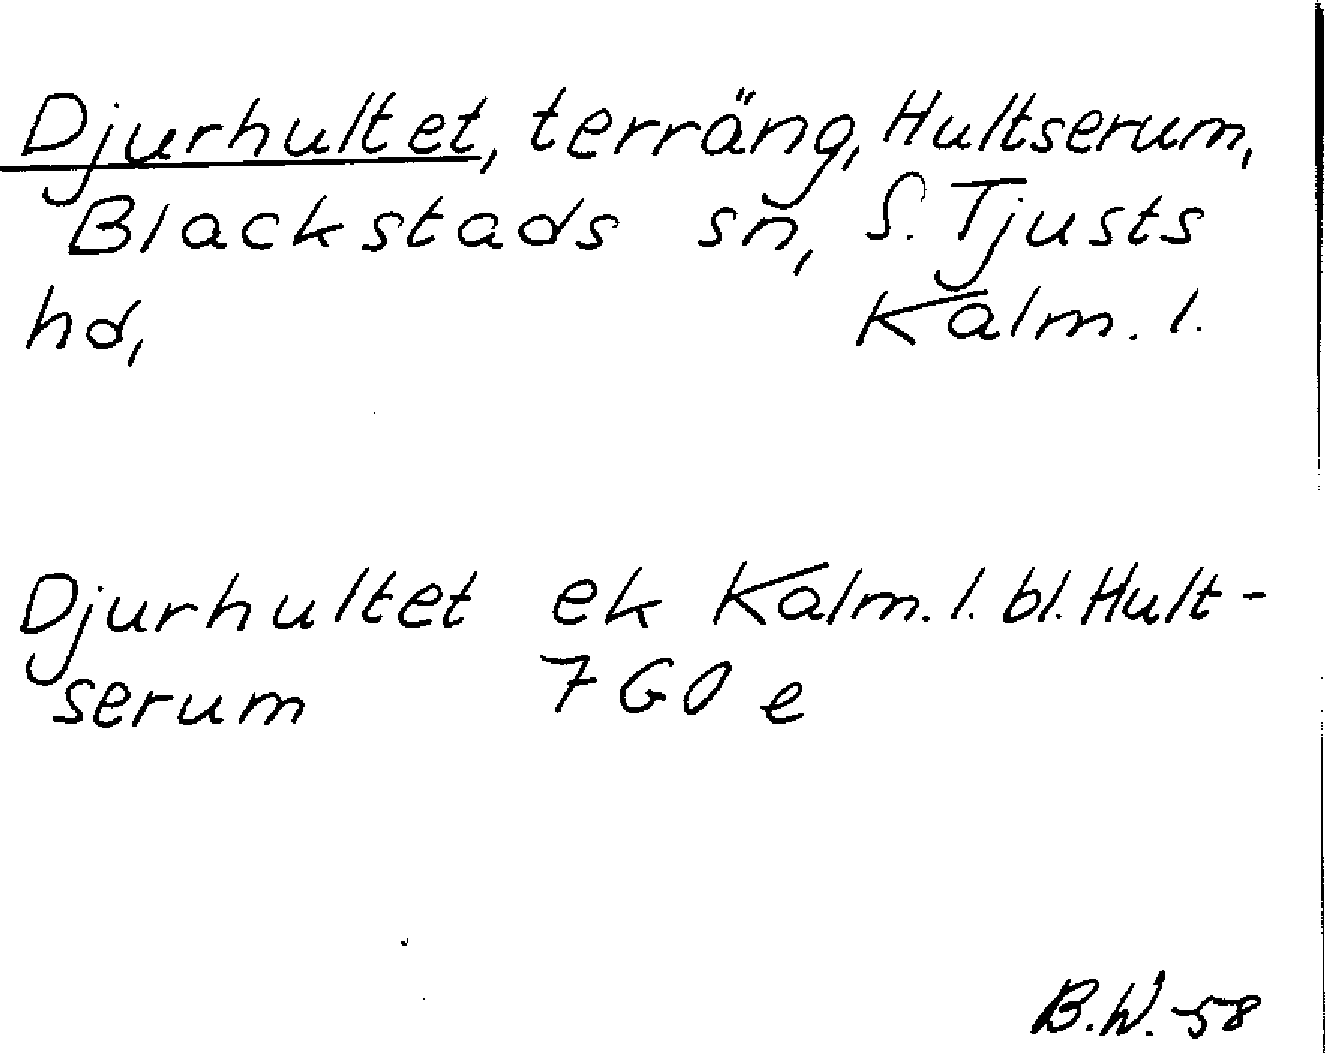 Djurhultet, terräng, Hultserum,
Blackstads sn, S. Tjusts
hd, Kalm. l.
Djurhultet ek Kalm. l. bl. Hult-
serum 7 G0 e
B.W. -58